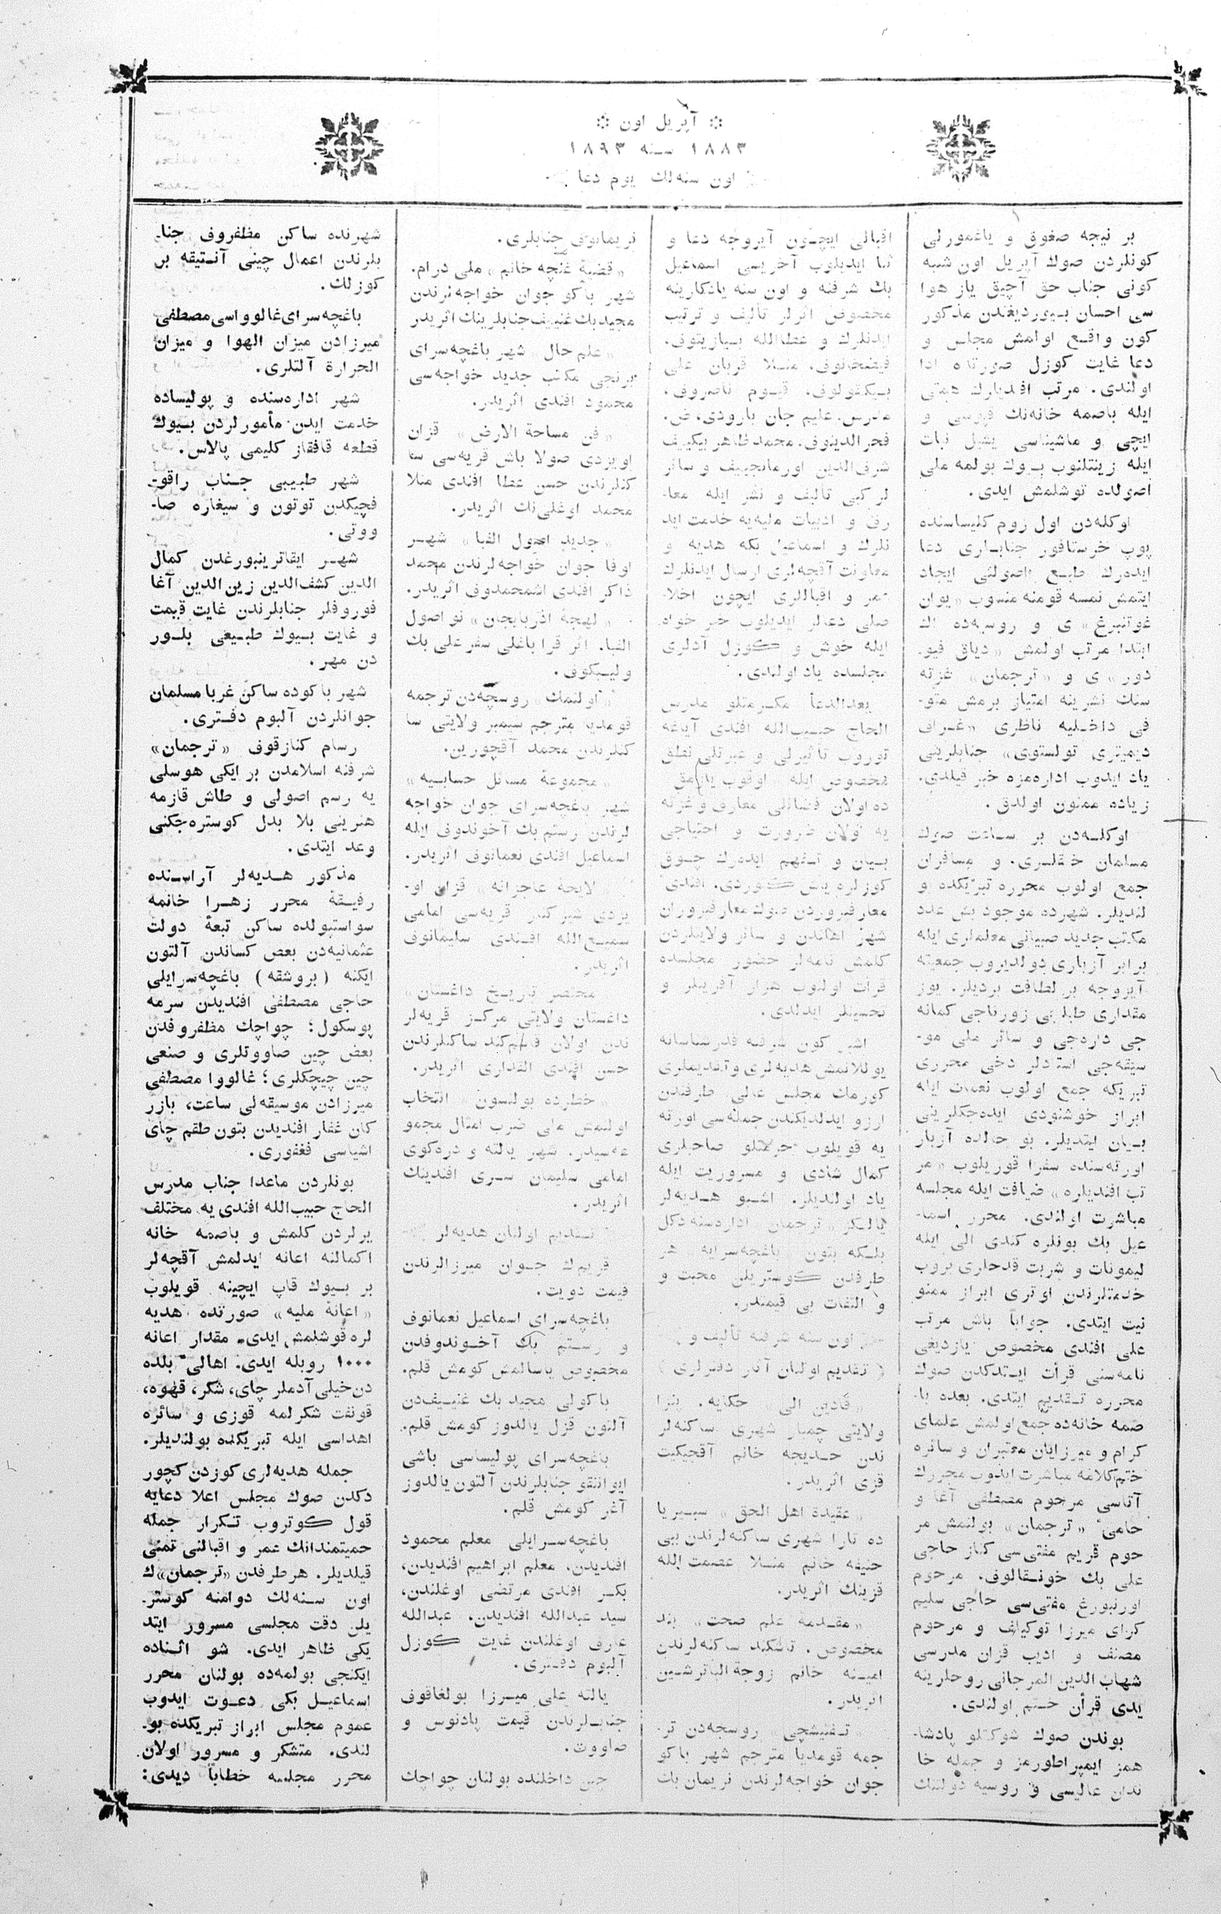 آپریل اون
۱۸۸۳ سنه ۱۸۹۳
اون سنه‌لك یوم دعا
بر نیجه صغوق و یاغمورلی
كونلردن صوك آپریل اون شنبه
كونی جناب حق آچیق یاز هوا
سی احسان بیوردیغندن مذكور
كون واقع اولمش مجلس و
دعا غایت كوزل صورتده ادا
اولندی. مرتب افندیلرك همتی
ایله باصمه خانه‌نك قپوسی و
ایچی و ماشیناسی یشل نبات
ایله زینتلنوب بیوك بولمه ملی
اصولده توشلمش ایدی.
اوكله‌دن اول روم كلیساسنده
پوپ خرستافور جنابلری دعا
ایده‌رك طبع اصولنی ایجاد
ایتمش نمسه قومنه منسوب «یوان
غوتنبرغ» ی و روسیه‌ده اك
ابتدا مرتب اولمش «دیاق فیو-
دور» ی و «ترجمان» غزته
سنك نشرینه امتیاز برمش متو-
فی داخلیه ناظری «غراف
دیمیتری تولستوی» جنابلرینی
یاد ایدوب اداره‌مزه خبر قیلدی.
زیاده ممنون اولدق.
اوكله‌دن بر ساعت صوك
مسلمان خلقلری. و مسافران
جمع اولوب محرره تبریكده و
لندیلر. شهرده موجود بش عدد
مكتب جدید صبیانی معلملری ایله
برابر آزباری دولدیروب جمعیته
آیروجه بر لطافت بردیلر. یوز
مقداری طلبه‌یی زورناجی كمانه
جی داره‌جی و سائر ملی مو-
سیقه‌جی استادلر دخی محرری
تبریكه جمع اولوب نغمات ایله
ابراز خوشنودی ایده‌جكلرینی
بیان ایتدیلر. بو حالده آزبار
اورته‌سنده سفرا قوریلوب «مر
تب افندیلره» ضیافت ایله مجلسه
مباشرت اولندی. محرر اسما-
عیل بك بونلره كندی الی ایله
لیمونات و شربت قدحلری بروب
خدمتلرندن اوتری ابراز ممنو
نیت ایتدی. جواباً باش مرتب
علی افندی مخصوص یازدیغی
نامه‌سنی قرأت ایتدكدن صوك
محرره تقدیم ایتدی. بعده با-
صمه خانه‌ده جمع اولمش علمای
كرام و میرزایان معتبران و سائره
ختم كلامه مباشرت ایدوب محررك
آتاسی مرحوم مصطفی آغا و
حامیٔ «ترجمان» بولنمش مر
حوم قریم مفتی‌سی كناز حاجی
علی بك خونقالوف. مرحوم
اورنبورغ مفتی‌سی حاجی سلیم
كرای میرزا توكیلف و مرحوم
مصنف و ادیب قزان مدرسی
شهاب الدین المرجانی روحلرینه
یدی قرأن ختم اولندی.
بوندن صوك شوكتلو پادشا-
همز ایمپراطورمز و جمله خا
ندان عالیسی و روسیه دولتنك
اقبالی ایچون آیروجه دعا و
ثنا ایدیلوب آخریسی اسماعیل
بك شرفنه و اون سنه یادكارینه
مخصوص اثرلر تألیف و ترتیب
ایدنلرك و عطاالله بیازیتوف.
فیضخانوف. منلا قربان علی
بیكقولوف. قیوم ناصروف.
مدرس. علیم جان بارودی، ض.
فخرالدینوف. محمد ظاهر بیكییف
شرف‌الدین اورمانجییف و سائر
لر كبی تألیف و نشر ایله معا-
رف و ادبیات ملیه‌یه خدمت اید
نلرك و اسماعیل بكه هدیه و
معاونت آقچه‌لری ارسال ایدنلرك
عمر و اقباللری ایچون اخلا-
صلی دعالر ایدیلوب خیر خواه
ایله خوش و كوزل آدلری
مجلسده یاد اولندی.
بعدالدعا مكرمتلو مدرس
الحاج حبیب‌الله افندی آیاغه
توروب تأثیرلی و عبرتلی نطق
مخصوص ایله اوقوب یازمق-
ده اولان فضائلی معارف و غزته
یه اولان ضرورت و احتیاجی
بیان و تفهیم ایده‌رك چوق
كوزلره یاش كتوردی. افندی
معارفپروردن صوك معارفپروران
شهر اهلندن و سائر ولایتلردن
كلمش نامه‌لر حضور مجلسده
قرأت اولنوب هزار آفرینلر و
تحسینلر ایدلدی.
اشبو كون شرفنه قدرشناسانه
یوللانمش هدیه‌لری و تقدیملری
كورمك مجلس عالی طرفندن
ارزو ایدلدیكندن جمله‌سی اورته
یه قویلوب حرمتلو صاحبلری
كمال شادی و مسروریت ایله
یاد اولندیلر. اشبو هدیه‌لر
یالكز «ترجمان» اداره‌سنه دكل
بلكه بتون باغچه‌سرایه هر
طرفدن كوستریلن محبت و
و التفات بی قیمتدر.
اون سنه شرفنه تألیف و
(تقدیم اولنان آثار دفترلری)
«قادین الی» حكایه. بنزا
ولایتی چمبار شهری ساكنه‌لر
ندن خدیجه خانم آقجیكیت
قزی اثریدر.
«عقیده اهل الحق» سیبیریا
ده تارا شهری ساكنه‌لرندن بیبی
حنیفه خانم منلا عصمت الله
قزینك اثریدر.
«مقدمهٔ علم صحت» بند
مخصوص. تاشكند ساكنه‌لرندن
امینه خانم زوجة الباترشین
اثریدر.
تفتیشچی روسجه‌دن تر-
جمه قومدیا مترجم شهر باكو
جوان خواجه‌لرندن نریمان بك
نریمانوف جنابلری.
«قضیهٔ غنچه خانم» ملی درام.
شهر باكو جوان خواجه‌لرندن
مجیدبك غنییف جنابلرینك اثریدر
«علم حال» شهر باغچه‌سرای
برنجی مكتب جدید خواجه‌سی
محمود افندی اثریدر.
«فن مساحة الارض» قزان
اویزدی صولا باش قریه‌سی سا
كنلرندن حسن عطا افندی منلا
محمد اوغلی‌نك اثریدر.
«جدید اصول الفبا» شهر
اوفا جوان خواجه‌لرندن محمد
ذاكر افندی اشمحمدوف اثریدر.
«لهجهٔ اذربایجان» نو اصول
الفبا. اثر قراباغلی سفرعلی بك
ولیبكوف.
«اولنمك» روسچه‌دن ترجمه
قومدیا مترجم سیمبر ولایتی سا
كنلرندن محمد آقچورین.
«مجموعهٔ مسائل حسابیه»
شهر باغچه‌سرای جوان خواجه
لرندن رستم بك آخوندوف ایله
اسماعیل افندی نعمانوف اثریدر.
«لایحهٔ عاجزانه» قزان او-
یزدی شیركتلر قریه‌سی امامی
سمیع‌الله افندی سلیمانوف
اثریدر.
«مختصر تاریخ داغستان»
داغستان ولایتی مركز قریه‌لر
ندن اولان قاضی‌كند ساكنلرندن
حسن افندی القداری اثریدر.
«خطرده بولنسون» انتخاب
اولنمش ملی ضرب امثال مجمو
عه‌سیدر. شهر یالته و دره‌كوی
امامی سلیمان سری افندینك
اثریدر.
تقدیم اولنان هدیه‌لر
قریمك جوان میرزالرندن
قیمت دویت.
باغچه‌سرای اسماعیل نعمانوف
و رستم بك آخوندوفدن
مخصوص یاسالمش كومش قلم.
باكولی مجید بك غنییف‌دن
آلتون قزل یالدوز كومش قلم.
باغچه‌سرای پولیساسی باشی
ایوانتقو جنابلرندن آلتون یالدوز
آغر كومش قلم.
باغچه‌سرایلی معلم محمود
افندیدن، معلم ابراهیم افندیدن،
بكر افندی مرتضی اوغلندن،
سید عبدالله افندیدن، عبدالله
عارف اوغلندن غایت كوزل
آلبوم دفتری.
یالته علی میرزا بولغاقوف
جنابلرندن قیمت پادنوس و
صاووت.
چین داخلنده بولنان چواچك
شهرنده ساكن مظفروف جنا-
بلرندن اعمال چینی آنتیقه بر
كوزلك.
باغچه‌سرای غالوواسی مصطفی
میرزادن میزان الهوا و میزان
الحرارة آلتلری.
شهر اداره‌سنده و پولیساده
خدمت ایدن مأمورلردن بیوك
قطعه قافقاز كلیمی پالاس.
شهر طبیبی جناب راقو-
فچیكدن توتون و سیغاره صا-
ووتی.
شهر ایقاترینبورغدن كمال
الدین كشف‌الدین زین‌الدین آغا
فوروفلر جنابلرندن غایت قیمت
و غایت بیوك طبیعی بلور
دن مهر.
شهر باكوده ساكن غربا مسلمان
جوانلردن آلبوم دفتری.
رسام كنازقوف «ترجمان»
شرفنه اسلامدن بر ایكی هوسلی
یه رسم اصولی و طاش قازمه
هنرینی بلا بدل كوستره‌جكنی
وعد ایتدی.
مذكور هدیه‌لر آراسنده
رفیقهٔ محرر زهرا خانمه
سواستپولده ساكن تبعهٔ دولت
عثمانیه‌دن بعض كساندن آلتون
ایكنه (بروشقه) باغچه‌سرایلی
حاجی مصطفی افندیدن سرمه
پوسكول؛ چواچك مظفروفدن
بعض چین صاووتلری و صنعی
چین چیچكلری؛ غالووا مصطفی
میرزادن موسیقه‌لی ساعت، بازر
كان غفار افندیدن بتون طقم چای
اشیاسی فغفوری.
بونلردن ماعدا جناب مدرس
الحاج حبیب‌الله افندی یه مختلف
یرلردن كلمش و باصمه خانه
اكمالنه اعانه ایدلمش آقچه‌لر
بر بیوك قاپ ایچینه قویلوب
«اعانهٔ ملیه» صورتده هدیه
لره قوشلمش ایدی. مقدار اعانه
۱۰۰۰ روبله ایدی. اهالیٔ بلده
دن خیلی آدملر چای، شكر، قهوه،
قونفت شكرلمه قوزی و سائره
اهداسی ایله تبریكده بولندیلر.
جمله هدیه‌لری كوزدن كچور
دكدن صوك مجلس اعلا دعایه
قول كوتروب تكرار جمله
حمیتمندانك عمر و اقبالنی تمنی
قیلدیلر. هر طرفدن «ترجمان»ك
اون سنه‌لك دوامنه كوستر-
یلن دقت مجلسی مسرور ایتد
یكی ظاهر ایدی. شو اثناده
ایكنجی بولمه‌ده بولنان محرر
اسماعیل بكی دعوت ایدوب
عموم مجلس ابراز تبریكده بو-
لندی. متشكر و مسرور اولان
محرر مجلسه خطاباً دیدی: